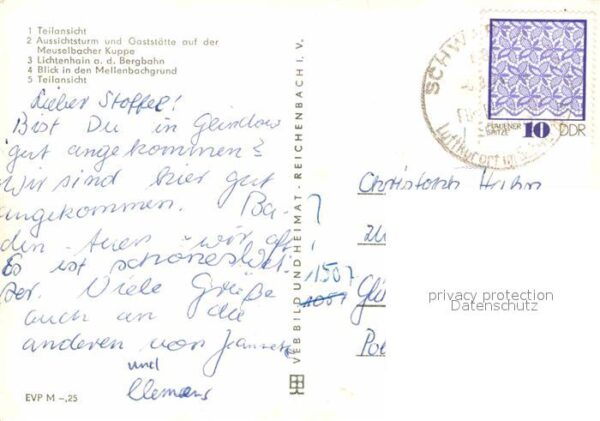 1 Teilansicht
2 Aussichtsturm und Gaststätte auf der
Meuselbacher Kuppe
3 Lichtenhain a. d. Bergbahn
4 Blick in den Mellenbachgrund
5 Teilansicht
Lieber Stoffel!
Bist Du in Glindow
gut angekommen?
Wir sind hier gut
angekommen. Ba-
den tuen wir oft
Es ist schönes Wet-
ter. Viele Grüße
auch an die
anderen von Jeannette
und
Clemens
EVP M -,25
VEB BILD UND HEIMAT · REICHENBACH I. V.
SCHWA
Luftkurort im
PLAUENER
SPITZE
10 DDR
Christoph Hahn
11507
1051
privacy protection
Datenschutz